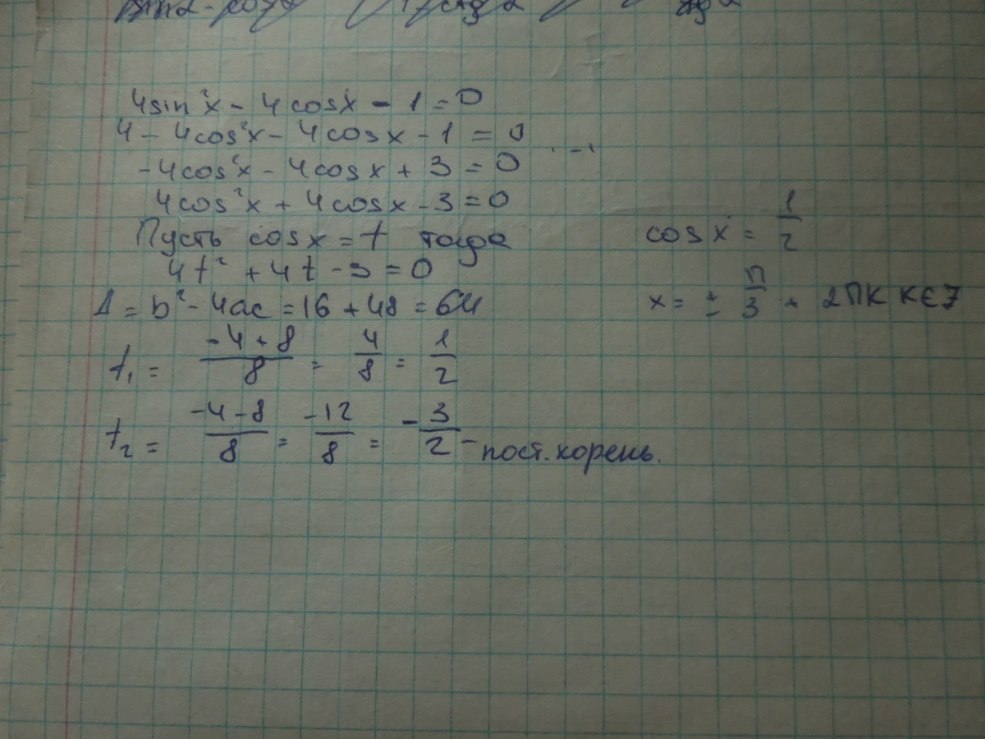 4sin²x - 4cosx - 1 = 0
4 - 4cos²x - 4cosx - 1 = 0
-4cos²x - 4cosx + 3 = 0
4cos²x + 4cosx - 3 = 0
Пусть cosx = t тогда
4t² + 4t - 3 = 0
Δ = b² - 4ac = 16 + 48 = 64
t₁ = (-4 + 8)/8 = 4/8 = 1/2
t₂ = (-4 - 8)/8 = -12/8 = -3/2 - пост. корень.
cosx = 1/2
x = ± π/3 + 2πK K∈Z